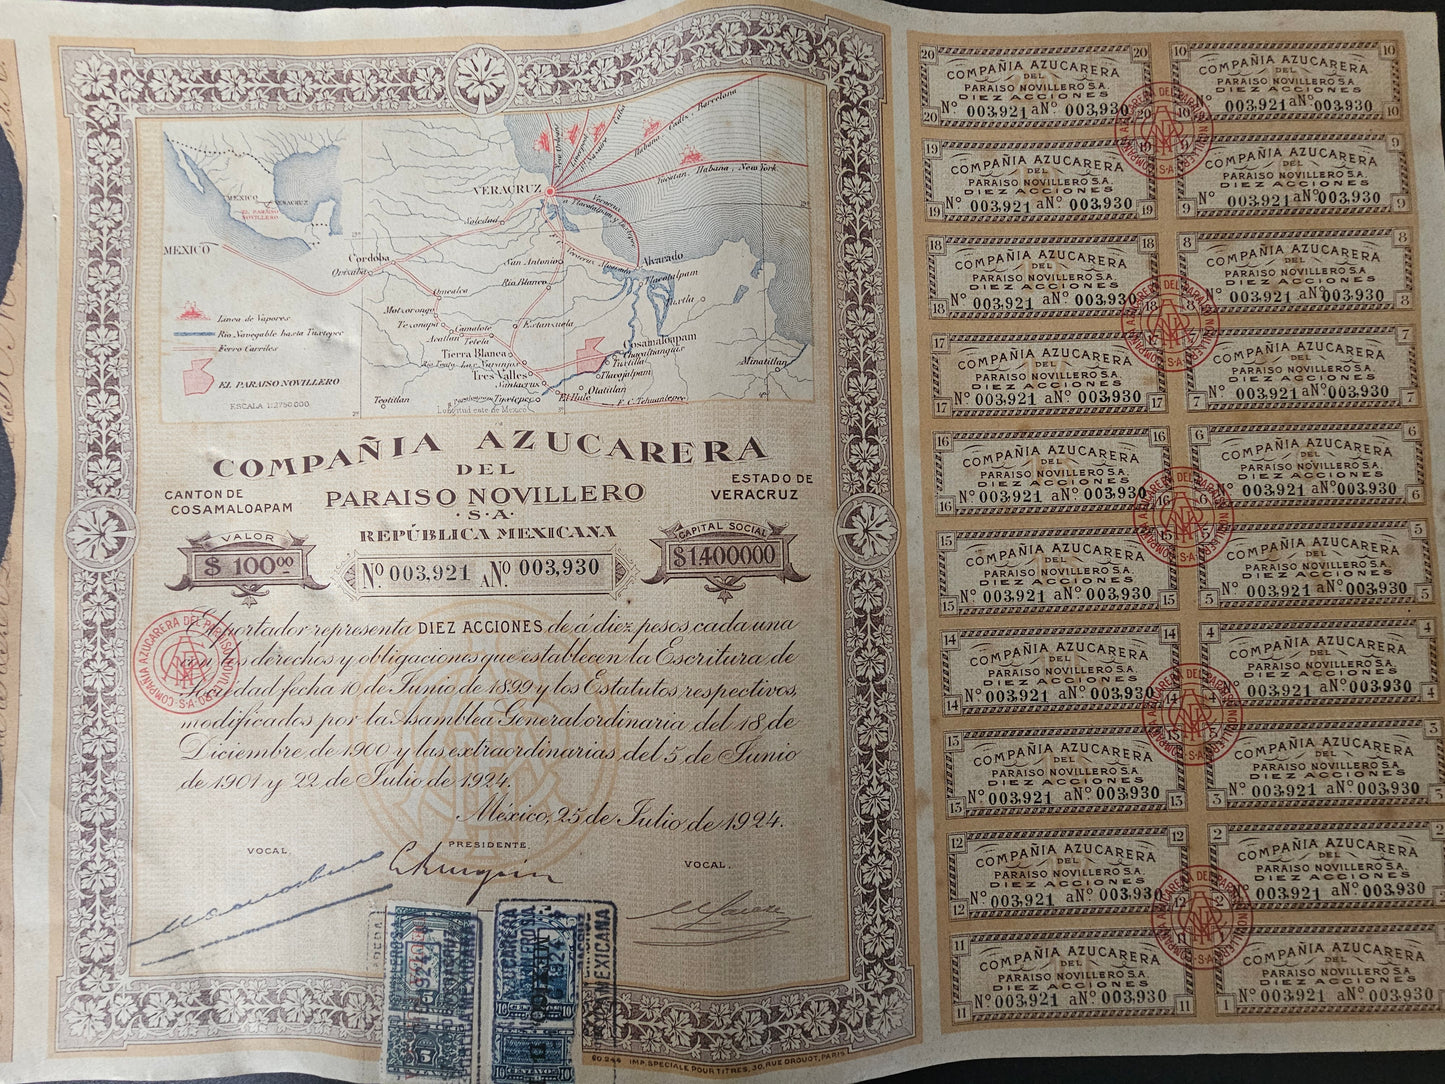 New York
Cuba
Barcelona
Cadiz
Habana
Yucatan, Habana, New York.
VERACRUZ
Veracruz
a Tlacotalpam y
Soledad
MEXICO
VERACRUZ
EL PARAISO
NOVILLERO
MEXICO
Cordoba
Orizaba
San Antonio
Alvarado
Tlacotalpam
Rio Blanco
Tuxtla
Omealca
Motzorongo
Linea de Vapores
Texonapa
Camalote
Estanzuela
Rio Navegable hasta Tuxtepec
Acatlan
Tetela
Cosamaloapam
Ferro Carriles
Tierra Blanca
Chacaltianguis
Tuxtilla
Minatitlan
EL PARAISO NOVILLERO
Tres-Valles
Tlacojalpam
Santacruz
Otatitlan
ESCALA 1:2750.000
Teotitlan
Tuxtepec
El Hule
F. C. Tehuantepec
Longitud este de Mexico
COMPAÑIA AZUCARERA
DEL
PARAISO NOVILLERO
·S·A·
CANTON DE
COSAMALOAPAM
ESTADO DE
VERACRUZ
REPÚBLICA MEXICANA
VALOR
$ 100.00
No 003,921 A No. 003,930
CAPITAL SOCIAL
$1.400000
El portador representa DIEZ ACCIONES de á diez pesos cada una
con los derechos y obligaciones que establecen la Escritura de
Sociedad fecha 10 de Junio de 1899 y los Estatutos respectivos,
modificados por la Asamblea General ordinaria del 18 de
Diciembre de 1900 y las extraordinarias del 5 de Junio
de 1901 y 22 de Julio de 1924.
México, 25 de Julio de 1924.
VOCAL.
PRESIDENTE.
VOCAL.
COMPAÑIA AZUCARERA DEL PARAISO NOVILLERO S·A
5
10 10
CENTAVOS
MEXICANA
60.244 IMP. SPECIALE POUR TITRES, 30, RUE DROUOT, PARIS
20 20
COMPAÑIA AZUCARERA
DEL
PARAISO NOVILLERO S.A.
DIEZ ACCIONES
No 003,921 a No 003,930
20 20
10 10
COMPAÑIA AZUCARERA
DEL
PARAISO NOVILLERO S.A.
DIEZ ACCIONES
No 003,921 a No 003,930
10 10
19
COMPAÑIA AZUCARERA
DEL
PARAISO NOVILLERO S.A.
DIEZ ACCIONES
No 003,921 a No 003,930
19 19
9
COMPAÑIA AZUCARERA
DEL
PARAISO NOVILLERO S.A.
DIEZ ACCIONES
No 003,921 a No 003,930
9 9
18 18
COMPAÑIA AZUCARERA
DEL
PARAISO NOVILLERO S.A.
DIEZ ACCIONES
No 003,921 a No 003,930
18 18
8 8
COMPAÑIA AZUCARERA
DEL
PARAISO NOVILLERO S.A.
DIEZ ACCIONES
No 003,921 a No 003,930
8 8
17
COMPAÑIA AZUCARERA
DEL
PARAISO NOVILLERO S.A.
DIEZ ACCIONES
No 003,921 a No 003,930
17 17
7
COMPAÑIA AZUCARERA
DEL
PARAISO NOVILLERO S.A.
DIEZ ACCIONES
No 003,921 a No 003,930
7 7
16 16
COMPAÑIA AZUCARERA
DEL
PARAISO NOVILLERO S.A.
DIEZ ACCIONES
No 003,921 a No 003,930
16 16
6 6
COMPAÑIA AZUCARERA
DEL
PARAISO NOVILLERO S.A.
DIEZ ACCIONES
No 003,921 a No 003,930
6 6
15 15
COMPAÑIA AZUCARERA
DEL
PARAISO NOVILLERO S.A.
DIEZ ACCIONES
No 003,921 a No 003,930
15 15
5 5
COMPAÑIA AZUCARERA
DEL
PARAISO NOVILLERO S.A.
DIEZ ACCIONES
No 003,921 a No 003,930
5 5
14 14
COMPAÑIA AZUCARERA
DEL
PARAISO NOVILLERO S.A.
DIEZ ACCIONES
No 003,921 a No 003,930
14 14
4 4
COMPAÑIA AZUCARERA
DEL
PARAISO NOVILLERO S.A.
DIEZ ACCIONES
No 003,921 a No 003,930
4 4
13 13
COMPAÑIA AZUCARERA
DEL
PARAISO NOVILLERO S.A.
DIEZ ACCIONES
No 003,921 a No 003,930
13 13
3
COMPAÑIA AZUCARERA
DEL
PARAISO NOVILLERO S.A.
DIEZ ACCIONES
No 003,921 a No 003,930
3 3
12 12
COMPAÑIA AZUCARERA
DEL
PARAISO NOVILLERO S.A.
DIEZ ACCIONES
No 003,921 a No 003,930
12
2 2
COMPAÑIA AZUCARERA
DEL
PARAISO NOVILLERO S.A.
DIEZ ACCIONES
No 003,921 a No 003,930
2
11 11
COMPAÑIA AZUCARERA
DEL
PARAISO NOVILLERO S.A.
DIEZ ACCIONES
No 003,921 a No 003,930
11 11
COMPAÑIA AZUCARERA
DEL
PARAISO NOVILLERO S.A.
DIEZ ACCIONES
No 003,921 a No 003,930
1